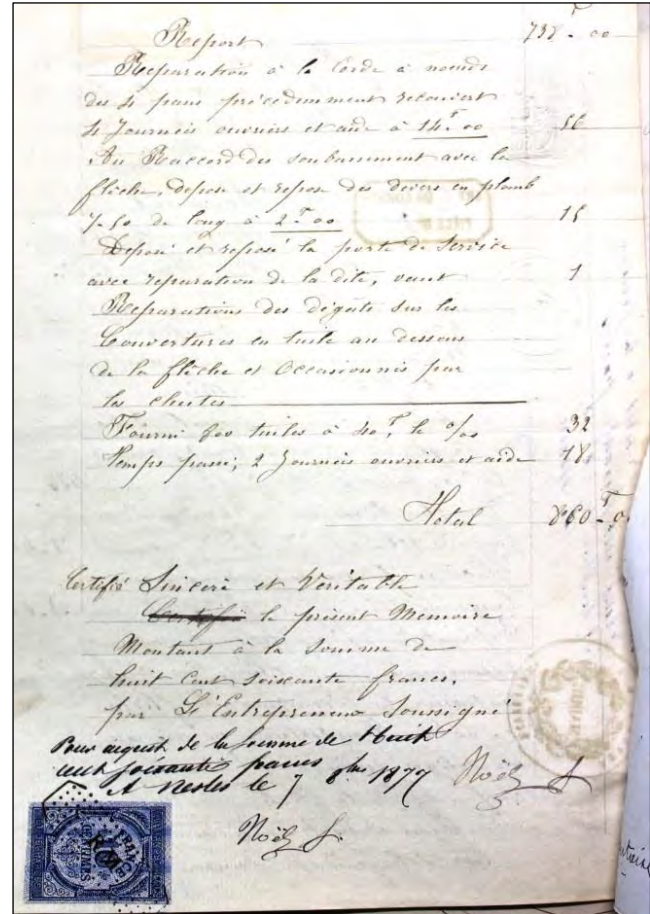 Report 738 - 00
Reparation à la Corde à noeuds
des 4 pans précedemment recouvert
4 Journées ouvriers et aide à 14.F 00 56
Au Raccord du soubassement avec la
flèche, depose et repose des devers en plomb
7.50 de long à 2.F 00 15
Deposé et reposé la porte de Service
avec reparation de la dite, vaut 1
Reparations des dégats sur les
Couvertures en tuile au dessous
de la flèche et Occasionnés par
les chutes
Fourni 800 tuiles à 40F, le o/oo 32
Temps passé; 2 Journées ouvriers et aide 18
Total 860 - F 0
Certifié Sincere et Veritable
Certifié le présent Memoire
Montant à la Somme de
huit Cent Soixante francs,
par L'Entrepreneur Soussigné
Pour acquit de la somme de Huit
cent soixante francs
A Nesles le 7 8bre 1877 Noël J
Noël J
FRANCE